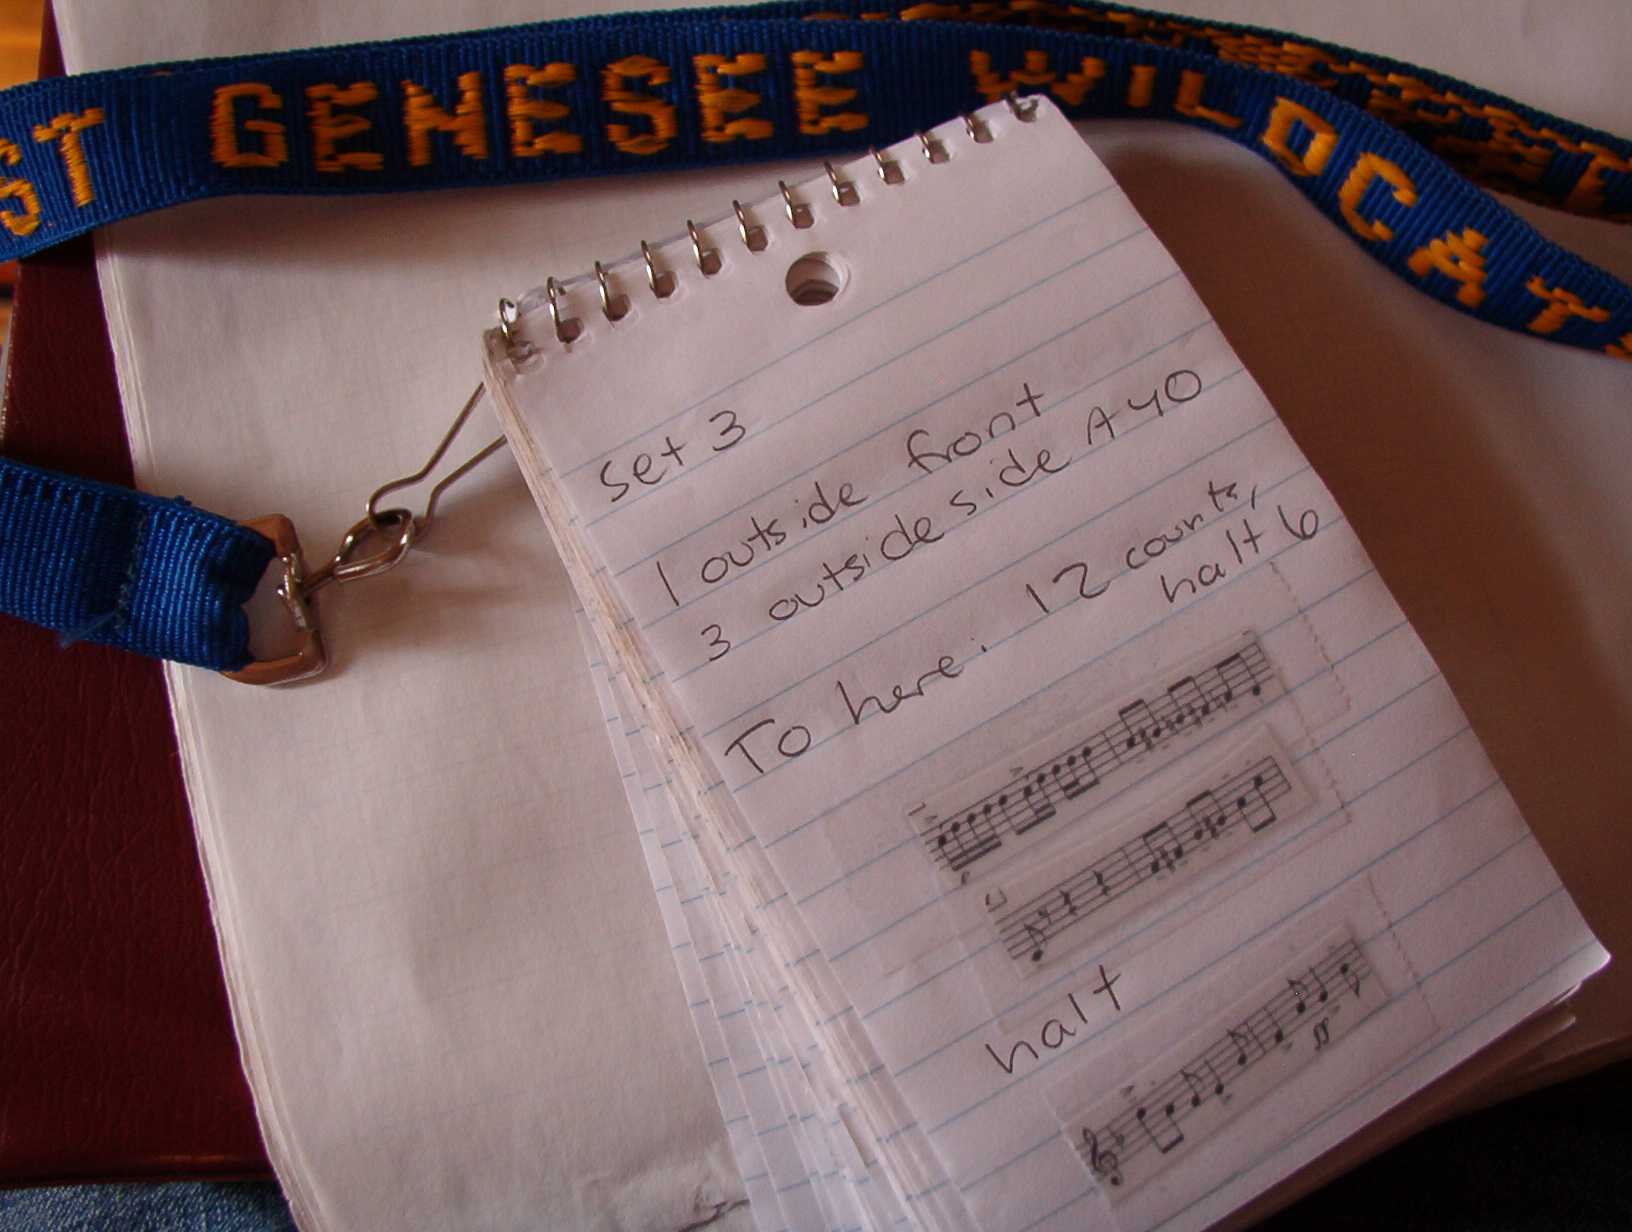 ST GENESEE WILDCATS
set 3
1 outside front
3 outside side A 40
To here: 12 counts,
halt 6
halt
ff